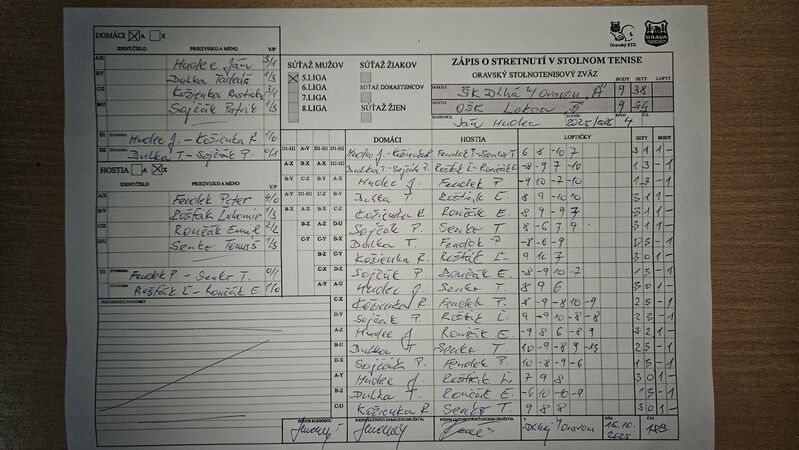 DOMÁCI A X
IDENT.ČÍSLO PRIEZVISKO A MENO V/P
A/X Hudec Ján 3/1
B/Y Dulka Tadeáš 1/3
C/Z Kožienka Rastislav 3/1
Sojčák Patrik 1/3
D1 Hudec J. - Kožienka R. 1/0
D2 Dulka T. - Sojčák P. 0/1
HOSTIA A X
IDENT.ČÍSLO PRIEZVISKO A MENO V/P
A/X Fendek Peter 4/0
B/Y Rošťák Ľubomír 1/3
C/Z Rončák Emil 2/2
Senko Tomáš 1/3
Fendek P. - Senko T. 0/1
Rošťák Ľ - Rončák E. 1/0
SÚŤAŽ MUŽOV
5.LIGA
6.LIGA
7.LIGA
8.LIGA
SÚŤAŽ ŽIAKOV
SÚŤAŽ DORASTENCOV
SÚŤAŽ ŽIEN
Oravský STZ
ORAVA
ZÁPIS O STRETNUTÍ V STOLNOM TENISE
ORAVSKÝ STOLNOTENISOVÝ ZVÄZ
BODY SETY LOPTY
DOMÁCI ŠK Dlhá n/Oravou "A" 9 38
HOSTIA OŠK Lokca "B" 9
Ján Hudec 2025/2026 4
DOMÁCI HOSTIA LOPTIČKY SETY BODY
D1-H1 Hudec J.-Kožienka R. Fendek P.-Senko T. 6 8 -10 7 3 1 1 -
D2-H2 Dulka T.-Sojčák P. Rošťák Ľ.-Rončák E. -8 -9 7 -10 1 3 - 1
A-X Hudec J. Fendek P. -9 -10 7 -10 1 3 - 1
B-Y Dulka T. Rošťák Ľ. 8 9 -10 10 3 1 1 -
C-Z Kožienka R. Rončák E. 8 9 -9 7 3 1 1 -
D-U Sojčák P. Senko T. 8 -6 7 9 3 1 1 -
B-X Dulka T. Fendek P. -8 -6 -9 0 3 - 1
Kožienka R. Rošťák Ľ. 9 10 7 3 0 1 -
Sojčák P. Rončák E. -8 -9 10 -7 1 3 - 1
A-U Hudec J. Senko T. 8 9 6 3 0 1 -
C-X Kožienka R. Fendek P. 8 -9 -8 10 -9 2 3 - 1
D-Y Sojčák P. Rošťák Ľ. 9 -10 -8 -8 2 3 - 1
A-Z Hudec J. Rončák E. -9 8 6 -8 9 3 2 1 -
B-U Dulka T. Senko T. 10 -9 -8 9 -13 2 3 - 1
D-X Sojčák P. Fendek P. 10 -8 -9 -6 1 3 - 1
A-Y Hudec J. Rošťák Ľ. 7 9 8 3 0 1 -
B-Z Dulka T. Rončák E. -6 10 -10 -9 1 3 - 1
C-U Kožienka R. Senko T. 9 8 8 3 0 1 -
PODPIS ROZHODCU
V Dlhej n/Oravou
DŇA 16.10. 2025
ČAS